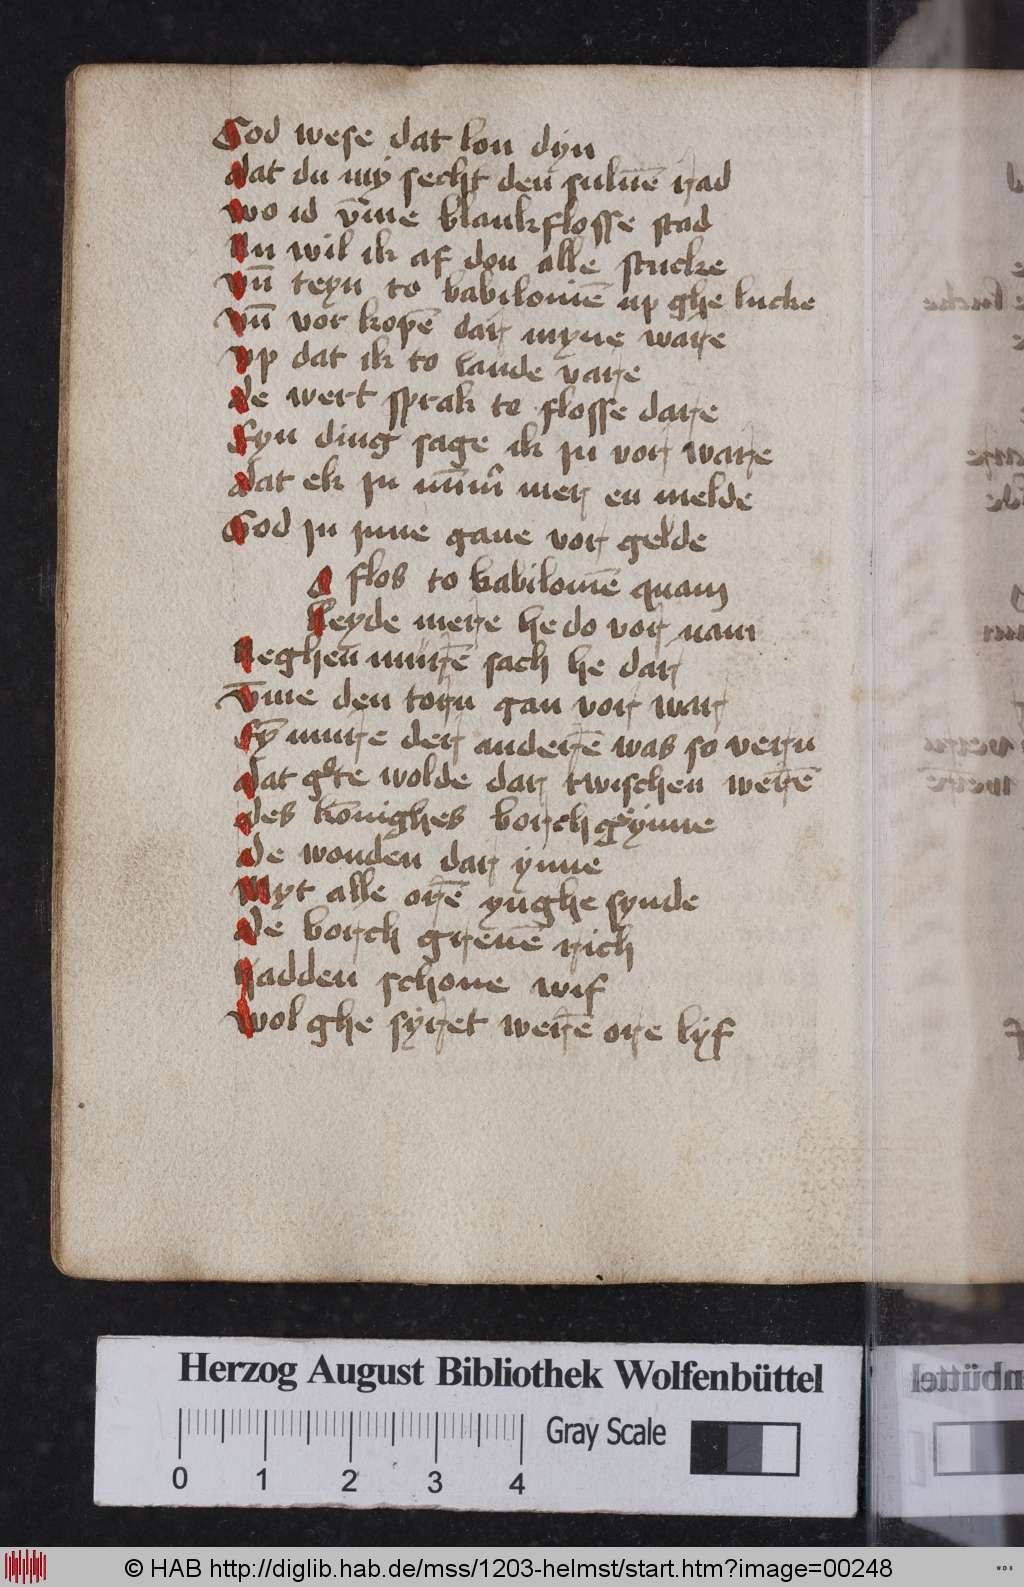 God wese dat lon dyn
dat du my secht den suluē rad
wo id v̄me blankflosse stad
Nu wil ik af don alle stucke
vn̄ teyn to babiloniē up ghe lucke
vn̄ vor kopē dar myne ware
up dat ik to lande vare
de wert sprak to flosse dare
Eyn ding sage ik iu vor ware
dat ek iu mer en melde
God iu iuwe gaue vor gelde
flos to babilomē quam
leyde mere he do vor nam
Neghen murē sach he dar
v̄me den torn gan vor war
Ey mure der anderē was so vern
dat wolde dar twischen werē
des konighes borchgrynne
de wonden dar ynne
Myt alle orē ynghe synde
de borch greuē rich
hadden schone wif
wol ghe syret werē ore lyf
Herzog August Bibliothek Wolfenbüttel
Gray Scale
0 1 2 3 4
© HAB http://diglib.hab.de/mss/1203-helmst/start.htm?image=00248